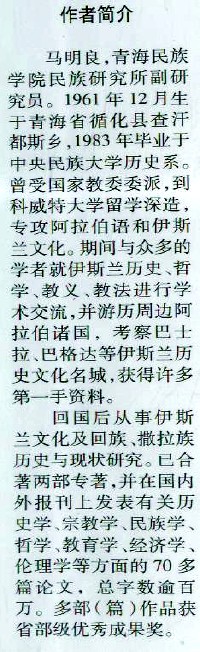 作者简介
马明良，青海民族
学院民族研究所副研
究员。1961年12月生
于青海省循化县查汗
都斯乡，1983年毕业于
中央民族大学历史系。
曾受国家教委委派，到
科威特大学留学深造，
专攻阿拉伯语和伊斯
兰文化。期间与众多的
学者就伊斯兰历史、哲
学、教义、教法进行学
术交流，并游历周边阿
拉伯诸国，考察巴士
拉、巴格达等伊斯兰历
史文化名城，获得许多
第一手资料。
回国后从事伊斯
兰文化及回族、撒拉族
历史与现状研究。已合
著两部专著，并在国内
外报刊上发表有关历
史学、宗教学、民族学、
哲学、教育学、经济学、
伦理学等方面的70多
篇论文，总字数逾百
万。多部（篇）作品获
省部级优秀成果奖。